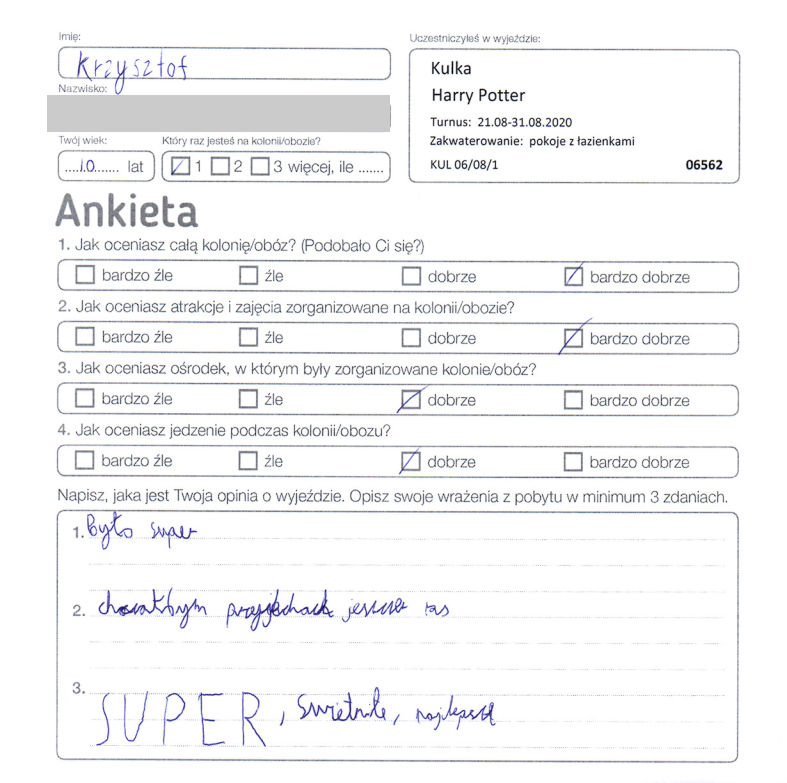 Imię:
Krzysztof
Nazwisko:
Twój wiek:
....10...... lat
Który raz jesteś na kolonii/obozie?
1 2 3 więcej, ile ......
Uczestniczyłeś w wyjeździe:
Kulka
Harry Potter
Turnus: 21.08-31.08.2020
Zakwaterowanie: pokoje z łazienkami
KUL 06/08/1 06562
Ankieta
1. Jak oceniasz całą kolonię/obóz? (Podobało Ci się?)
bardzo źle źle dobrze bardzo dobrze
2. Jak oceniasz atrakcje i zajęcia zorganizowane na kolonii/obozie?
bardzo źle źle dobrze bardzo dobrze
3. Jak oceniasz ośrodek, w którym były zorganizowane kolonie/obóz?
bardzo źle źle dobrze bardzo dobrze
4. Jak oceniasz jedzenie podczas kolonii/obozu?
bardzo źle źle dobrze bardzo dobrze
Napisz, jaka jest Twoja opinia o wyjeździe. Opisz swoje wrażenia z pobytu w minimum 3 zdaniach.
1. było super
2. jeszcze ras
3. SUPER,